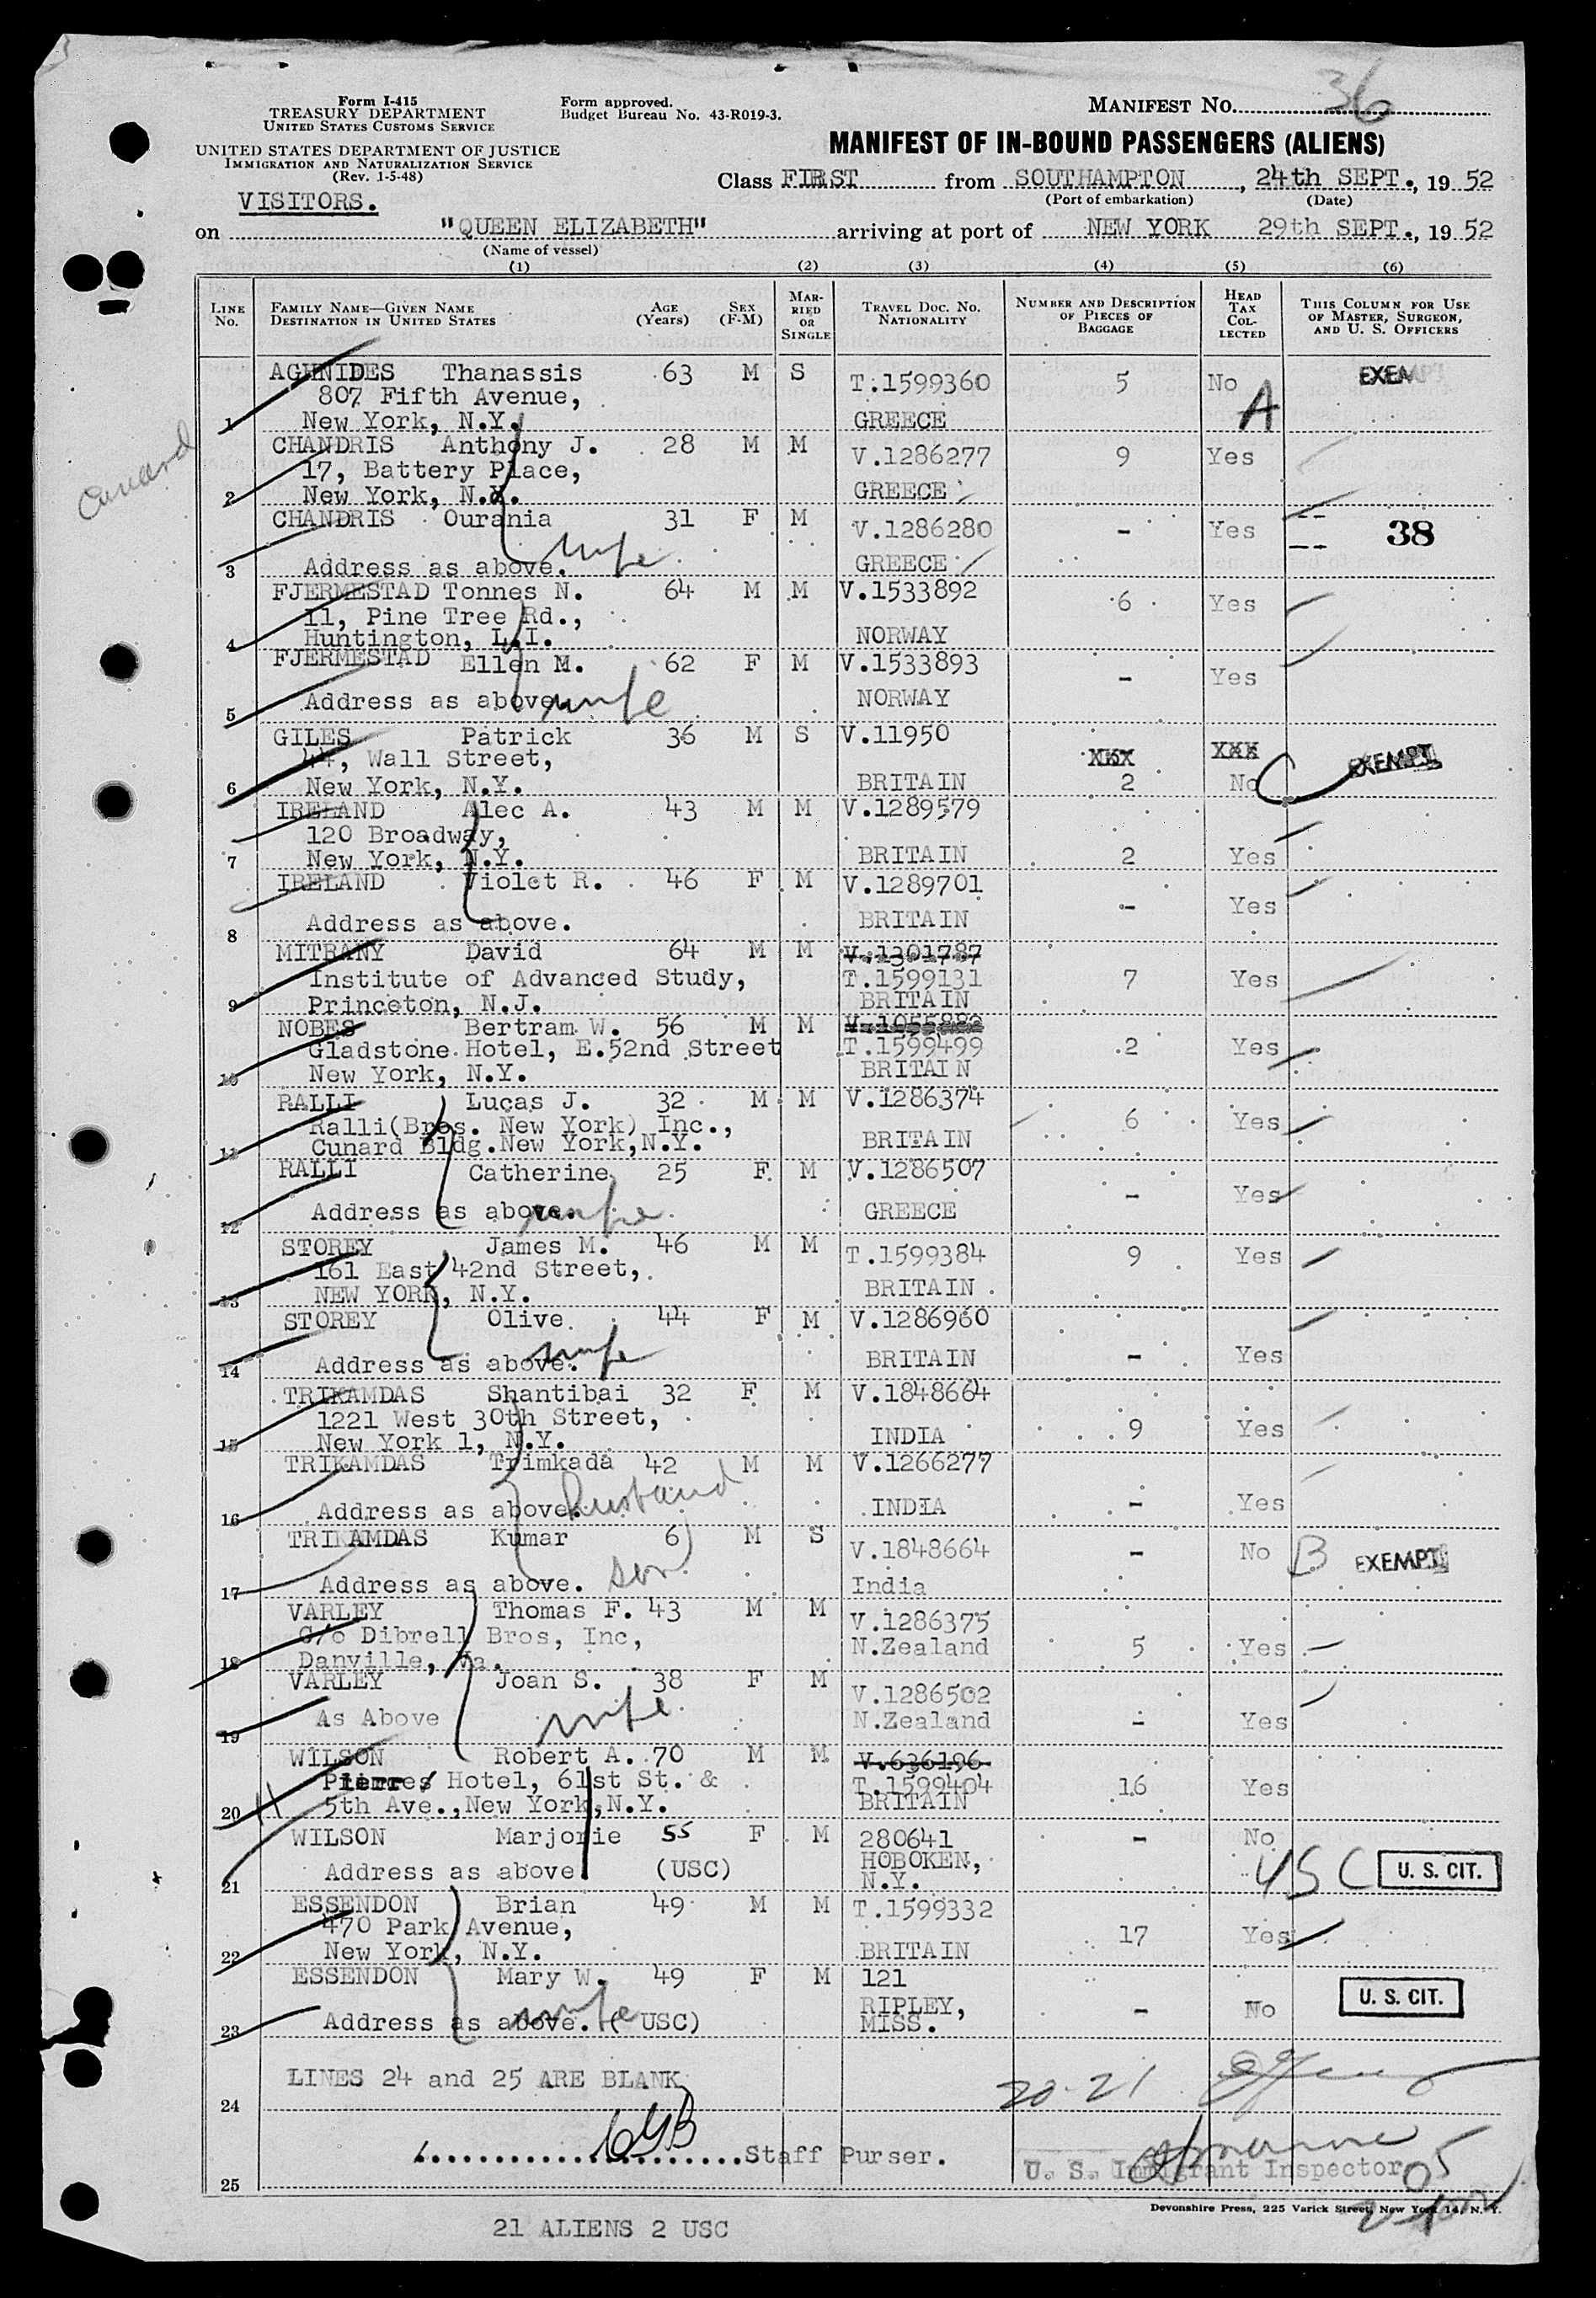 Form I-415
TREASURY DEPARTMENT
UNITED STATES CUSTOMS SERVICE
UNITED STATES DEPARTMENT OF JUSTICE
IMMIGRATION AND NATURALIZATION SERVICE
(Rev. 1-5-48)
Form approved.
Budget Bureau No. 43-R019-3.
MANIFEST NO. 36
MANIFEST OF IN-BOUND PASSENGERS (ALIENS)
Class FIRST from SOUTHAMPTON, 24th SEPT., 19 52
(Port of embarkation) (Date)
VISITORS.
on "QUEEN ELIZABETH" arriving at port of NEW YORK 29th SEPT., 19 52
(Name of vessel)
(1) (2) (3) (4) (5) (6)
LINE No. FAMILY NAME—GIVEN NAME DESTINATION IN UNITED STATES AGE (Years) SEX (F-M) MARRIED OR SINGLE TRAVEL DOC. NO. NATIONALITY NUMBER AND DESCRIPTION OF PIECES OF BAGGAGE HEAD TAX COLLECTED THIS COLUMN FOR USE OF MASTER, SURGEON, AND U. S. OFFICERS
Cunard
AGHNIDES Thanassis 63 M S T.1599360 5 No EXEMPT
807 Fifth Avenue, A
1 New York, N.Y. GREECE
CHANDRIS Anthony J. 28 M M V.1286277 9 Yes
17, Battery Place,
2 New York, N.Y. GREECE
CHANDRIS Ourania 31 F M V.1286280 - Yes -- -- 38
wife
3 Address as above. GREECE
FJERMESTAD Tonnes N. 64 M M V.1533892 6 Yes
11, Pine Tree Rd.,
4 Huntington, L.I. NORWAY
FJERMESTAD Ellen M. 62 F M V.1533893 - Yes
5 Address as above. wife NORWAY
GILES Patrick 36 M S V.11950 XXX XXX
44, Wall Street, EXEMPT
6 New York, N.Y. BRITAIN 2 No C
IRELAND Alec A. 43 M M V.1289579
120 Broadway,
7 New York, N.Y. BRITAIN 2 Yes
IRELAND Violet R. 46 F M V.1289701 - Yes
8 Address as above. BRITAIN
MITRANY David 64 M M V.1301787
Institute of Advanced Study, T.1599131 7 Yes
9 Princeton, N.J. BRITAIN
NOBES Bertram W. 56 M M V.1055882
Gladstone Hotel, E.52nd Street T.1599499 2 Yes
10 New York, N.Y. BRITAIN
RALLI Lucas J. 32 M M V.1286374
Ralli(Bros. New York) Inc., 6 Yes
11 Cunard Bldg.New York,N.Y. BRITAIN
RALLI Catherine 25 F M V.1286507 - Yes
12 Address as above. wife GREECE
STOREY James M. 46 M M T.1599384 9 Yes
161 East 42nd Street,
13 NEW YORK, N.Y. BRITAIN
STOREY Olive 44 F M V.1286960
14 Address as above. wife BRITAIN - Yes
TRIKAMDAS Shantibai 32 F M V.1848664
1221 West 30th Street, 9 Yes
15 New York 1, N.Y. INDIA
TRIKAMDAS Trimkada 42 M M V.1266277
16 Address as above. husband INDIA - Yes
TRIKAMDAS Kumar 6 M S V.1848664 - No B EXEMPT
17 Address as above. son India
VARLEY Thomas F. 43 M M V.1286375
C/o Dibrell Bros, Inc, N.Zealand 5 Yes
18 Danville, Va.
VARLEY Joan S. 38 F M V.1286502
19 As Above wife N.Zealand - Yes
WILSON Robert A. 70 M M V.636196
Pierres Hotel, 61st St. & T.1599404 16 Yes
20 5th Ave.,New York,N.Y. BRITAIN
WILSON Marjorie 55 F M 280641 - No
21 Address as above (USC) HOBOKEN, N.Y. USC U. S. CIT.
ESSENDON Brian 49 M M T.1599332
470 Park Avenue, 17 Yes
22 New York, N.Y. BRITAIN
ESSENDON Mary W. 49 F M 121 U. S. CIT.
23 Address as above. (USC) wife RIPLEY, MISS. - No
LINES 24 and 25 ARE BLANK
24 20-21
Staff Purser.
U. S. Immigrant Inspector
25
Devonshire Press, 225 Varick Street, New York 14, N. Y.
21 ALIENS 2 USC